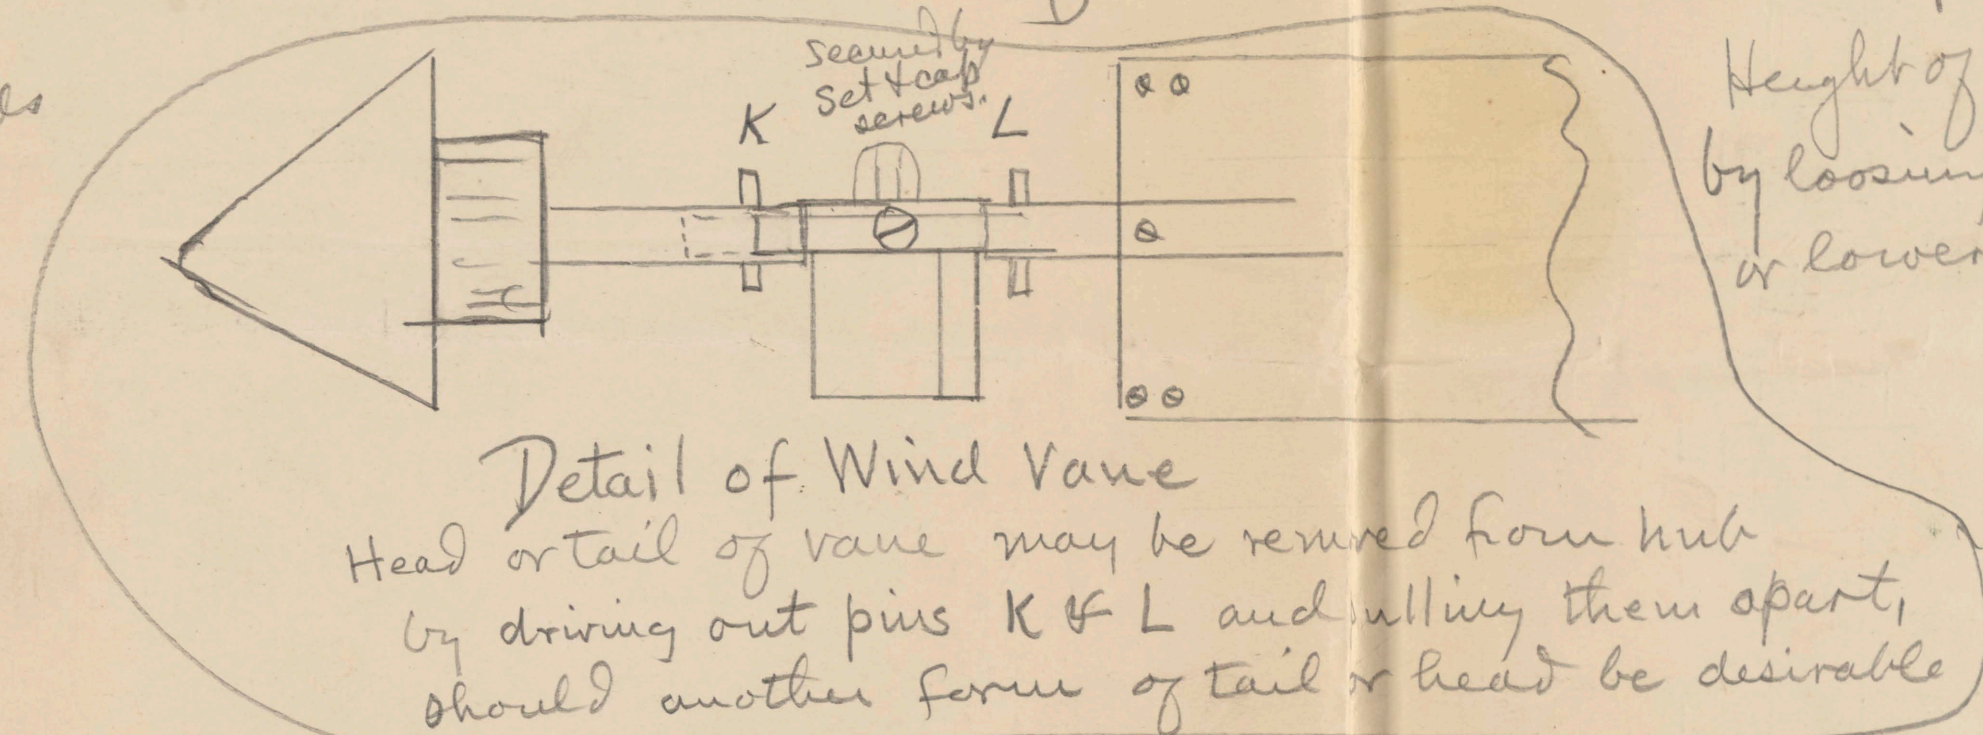 secured by
set & cap
screws.
K
L
Height of
by loosin
or lower
Detail of Wind Vane
Head or tail of vane may be removed from hub
by driving out pins K & L and pulling them apart,
should another form of tail or head be desirable